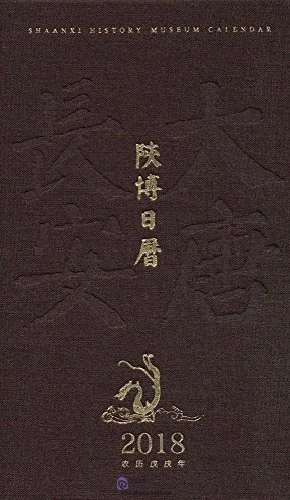 SHAANXI HISTORY MUSEUM CALENDAR
大唐
長安
陝博日曆
2018
农历戊戌年